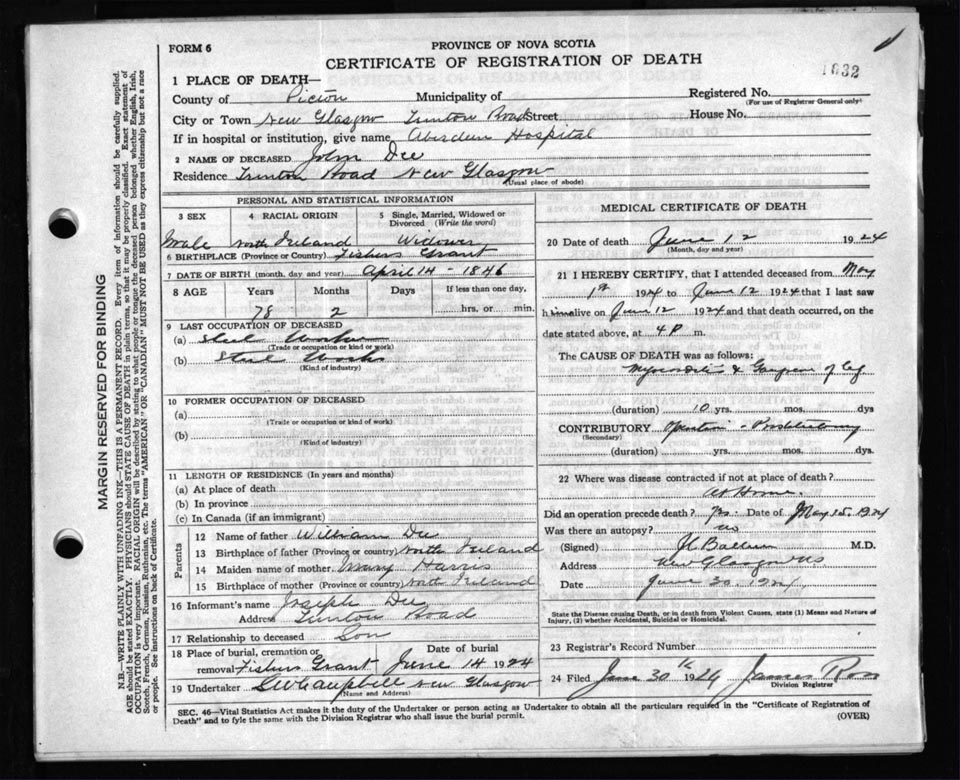 FORM 6
PROVINCE OF NOVA SCOTIA
CERTIFICATE OF REGISTRATION OF DEATH
1632
1 PLACE OF DEATH—
County of Pictou Municipality of
Registered No.
(For use of Registrar General only)
City or Town New Glasgow Trenton Road Street House No.
If in hospital or institution, give name Aberdeen Hospital
2 NAME OF DECEASED John Dee
Residence Trenton Road New Glasgow
(Usual place of abode)
MARGIN RESERVED FOR BINDING
N.B.—WRITE PLAINLY WITH UNFADING INK—THIS IS A PERMANENT RECORD. Every item of information should be carefully supplied.
AGE should be stated EXACTLY. PHYSICIANS should STATE CAUSE OF DEATH in plain terms, so that it may be properly classified. Exact statement of
OCCUPATION is very important. RACIAL ORIGIN will be described by stating to what people or tongue the deceased person belonged whether English, Irish,
Scotch, French, German, Russian, Ruthenian, etc. The terms "AMERICAN" OR "CANADIAN" MUST NOT BE USED as they express citizenship but not a race
of people. See instructions on back of Certificate.
PERSONAL AND STATISTICAL INFORMATION
3 SEX
4 RACIAL ORIGIN
5 Single, Married, Widowed or
Divorced (Write the word)
Male North Ireland Widower
6 BIRTHPLACE (Province or Country) Fishers Grant
7 DATE OF BIRTH (month, day and year) April 14 - 1846
8 AGE Years Months Days If less than one day,
78 2 hrs. or min.
9 LAST OCCUPATION OF DECEASED
(a) Steel Worker
(Trade or occupation or kind of work)
(b) Steel Works
(Kind of industry)
10 FORMER OCCUPATION OF DECEASED
(a)
(Trade or occupation or kind of work)
(b)
(Kind of industry)
11 LENGTH OF RESIDENCE (In years and months)
(a) At place of death
(b) In province
(c) In Canada (if an immigrant)
Parents
12 Name of father William Dee
13 Birthplace of father (Province or country) North Ireland
14 Maiden name of mother Mary Harris
15 Birthplace of mother (Province or country) North Ireland
16 Informant's name Joseph Dee
Address Trenton Road
17 Relationship to deceased Son
18 Place of burial, cremation or Date of burial
removal Fishers Grant June 14 1924
19 Undertaker Campbell New Glasgow
(Name and Address)
MEDICAL CERTIFICATE OF DEATH
20 Date of death June 12 1924
(Month, day and year)
21 I HEREBY CERTIFY, that I attended deceased from May
1st 1924 to June 12 1924 that I last saw
him alive on June 12 1924 and that death occurred, on the
date stated above, at 4 P m.
The CAUSE OF DEATH was as follows:
Myocarditis & Gangrene of leg
(duration) 10 yrs. mos. dys
CONTRIBUTORY Operation
(Secondary)
(duration) yrs. mos. dys.
22 Where was disease contracted if not at place of death?
At Home.
Did an operation precede death? Yes. Date of May 25. 1924
Was there an autopsy? No
(Signed) M.D.
Address New Glasgow NS
Date June 30. 1924
State the Disease causing Death, or in death from Violent Causes, state (1) Means and Nature of
Injury, (2) whether Accidental, Suicidal or Homicidal.
23 Registrar's Record Number
24 Filed June 30th 1924 James Ross
Division Registrar
SEC. 46—Vital Statistics Act makes it the duty of the Undertaker or person acting as Undertaker to obtain all the particulars required in the "Certificate of Registration of
Death" and to fyle the same with the Division Registrar who shall issue the burial permit.
(OVER)